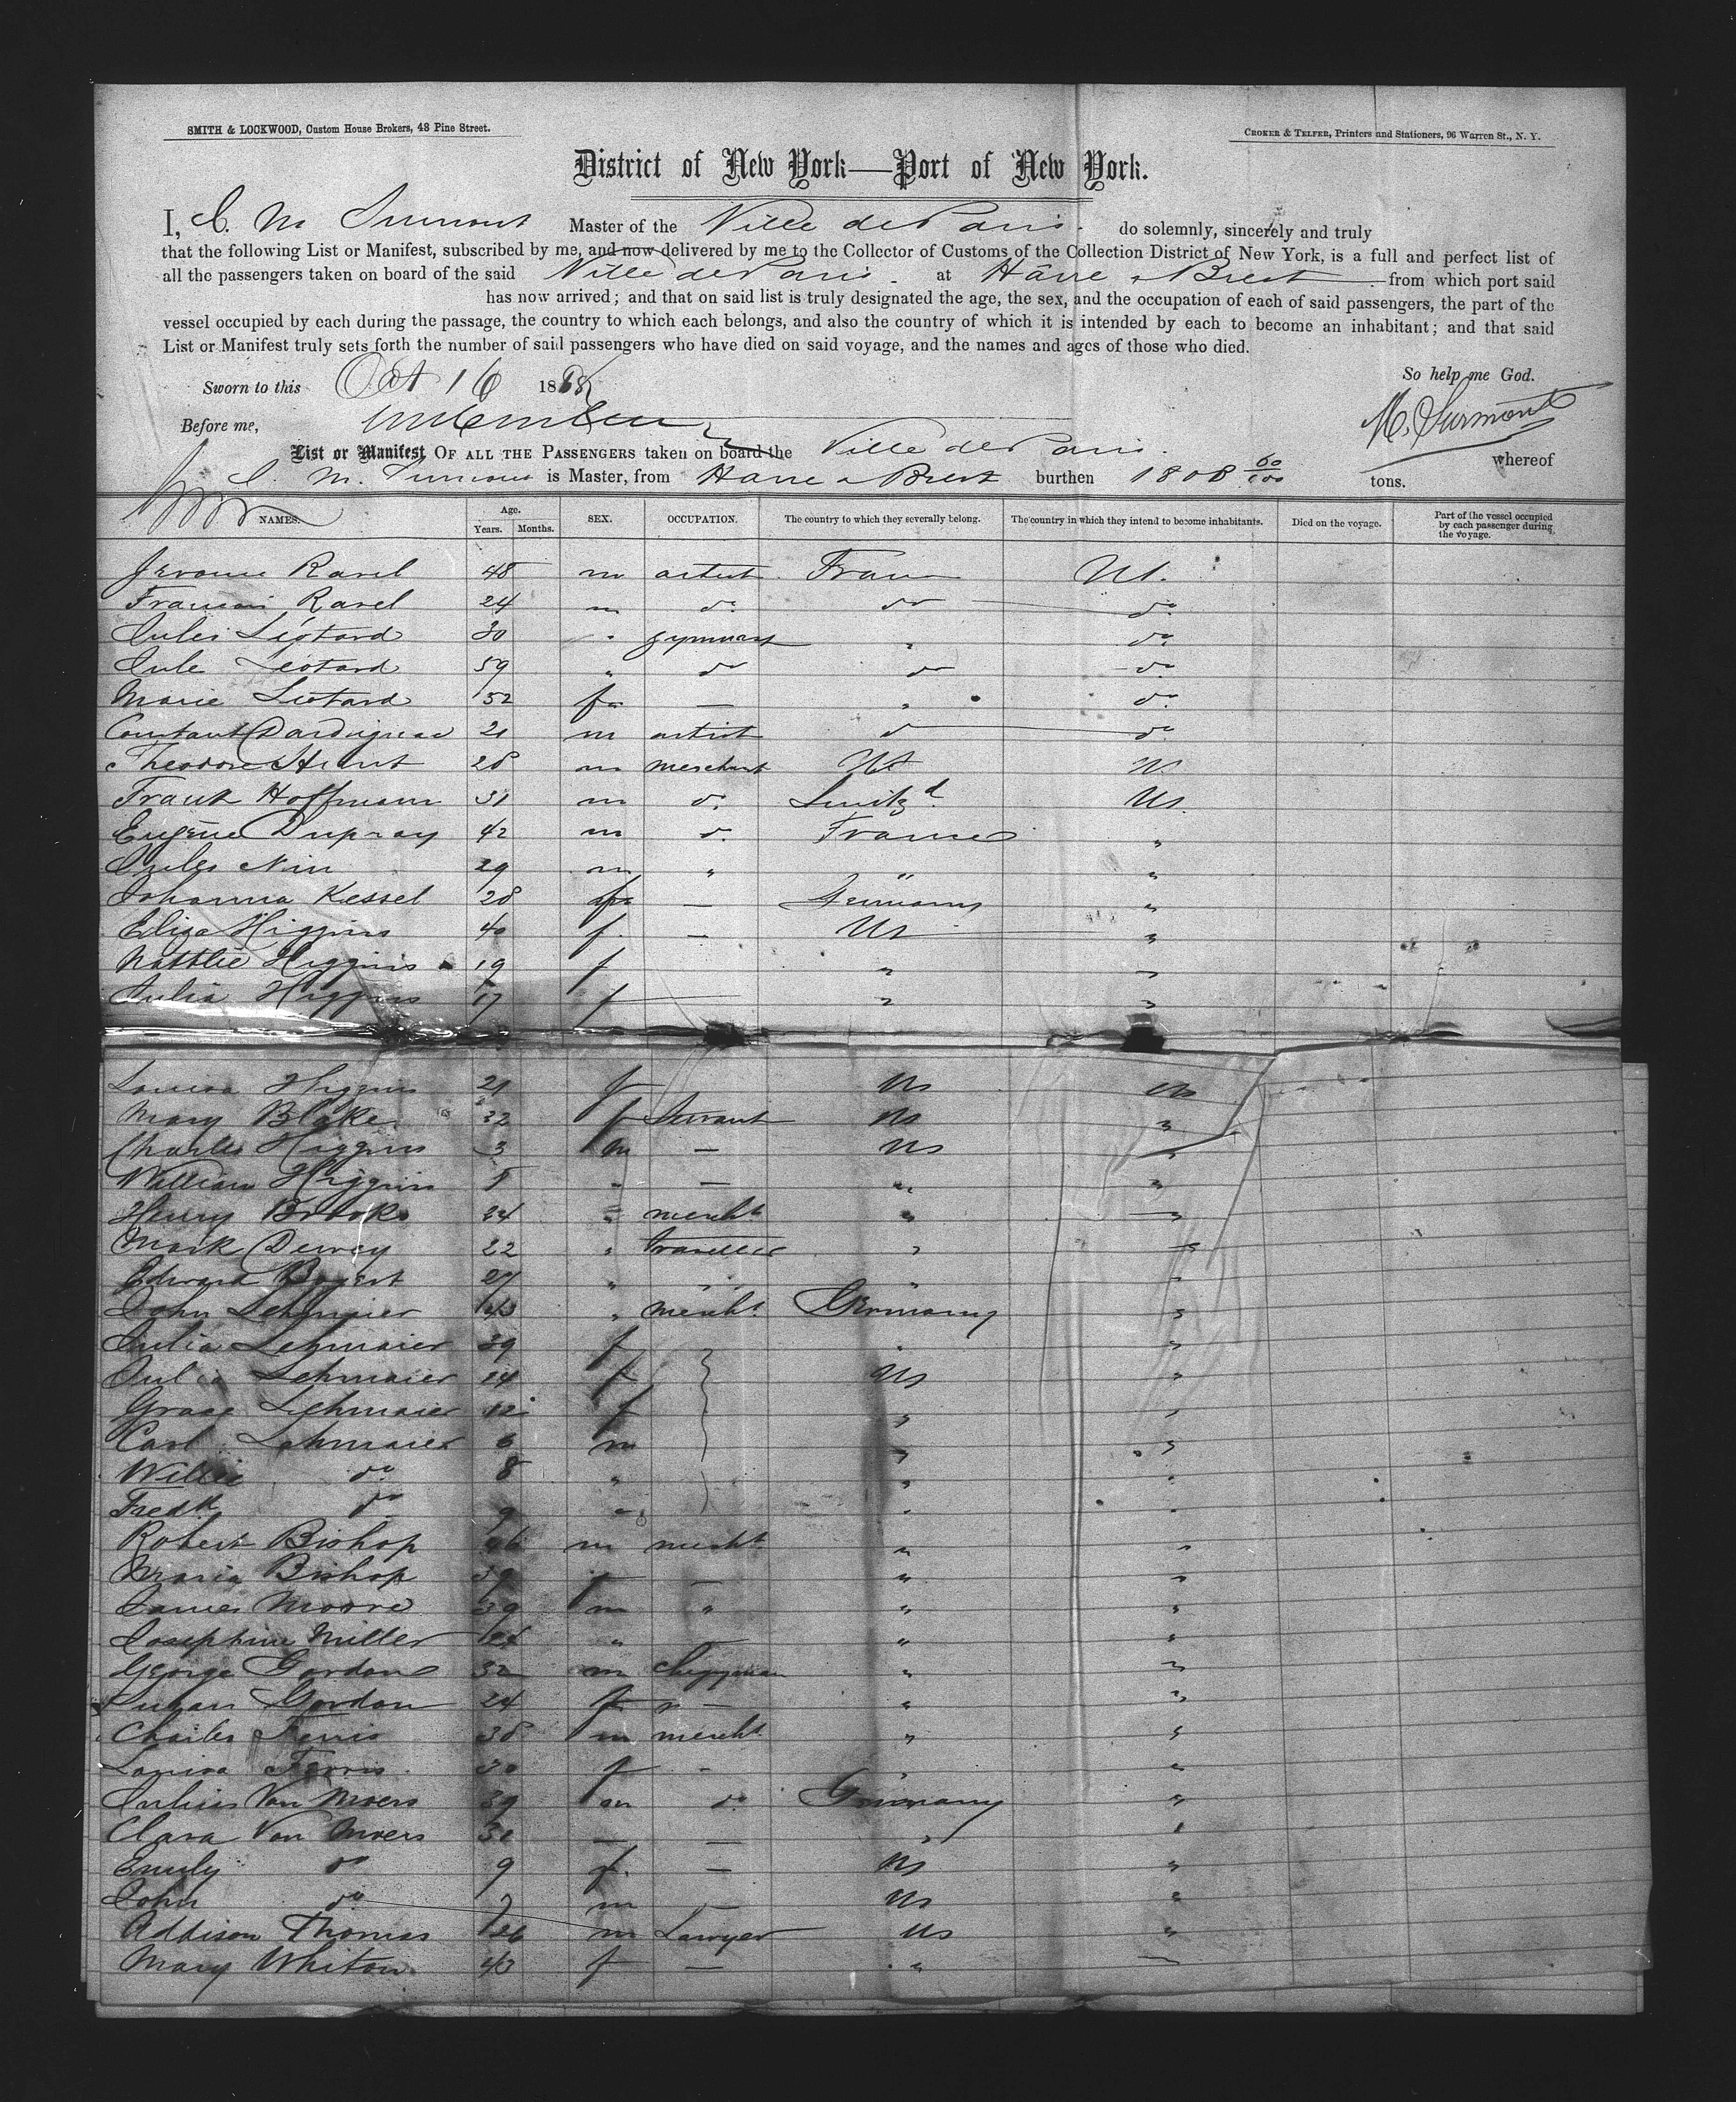 SMITH & LOCKWOOD, Custom House Brokers, 48 Pine Street.
CROKER & TELFER, Printers and Stationers, 96 Warren St., N. Y.
District of New York—Port of New York.
I, Master of the Ville de Paris do solemnly, sincerely and truly
that the following List or Manifest, subscribed by me, and now delivered by me to the Collector of Customs of the Collection District of New York, is a full and perfect list of
all the passengers taken on board of the said Ville de Paris at Havre & Brest from which port said
has now arrived; and that on said list is truly designated the age, the sex, and the occupation of each of said passengers, the part of the
vessel occupied by each during the passage, the country to which each belongs, and also the country of which it is intended by each to become an inhabitant; and that said
List or Manifest truly sets forth the number of said passengers who have died on said voyage, and the names and ages of those who died.
So help me God.
Sworn to this Oct 16 1868
M. Surmont
Before me,
List or Manifest OF ALL THE PASSENGERS taken on board the Ville de Paris whereof
is Master, from Havre & Brest burthen 1808 60/100 tons.
NAMES. Age. Years. Months. SEX. OCCUPATION. The country to which they severally belong. The country in which they intend to become inhabitants. Died on the voyage. Part of the vessel occupied by each passenger during the voyage.
Jerome Ravel 48 m artist France US.
Francois Ravel 24 m do do do
Jules Léotard 30 " gymnast " do
Jule Léotard 59 " do do do
Marie Leotard 52 f — " do
Constant 21 m artist do do
Theodore Hunt 28 m merchant US US
Frank Hoffmann 31 m do Switzd US
Eugène Dupray 42 m do France "
Jules Nin 29 m " " "
Johanna Kessel 28 f — Germany "
Eliza Higgins 40 f. — US "
Natthlie Higgins 19 f " "
Julia Higgins 17 f — " "
Louisa Higgins 21 f US US
Mary Blake 32 f Servant US "
Charles Higgins 3 m — US "
William Higgins " — " "
Henry Brooks 24 " mercht " "
Mark Dewey 22 " traveller " "
Edward Bogert 27 " " " "
John Lehmaier 43 " mercht Germany "
Julia Lehmaier 39 f " "
Julia Lehmaier 14 f US "
Grace Lehmaier 12 f " "
Carl Lehmaier 6 m " "
Willie do 8 " " "
Fredk do 9 " " "
Robert Bishop 46 m mercht " "
Maria Bishop 39 f — " "
James Moore 39 m " " "
Josephine Miller 24 " — " "
George Gordon 32 m clergyman " "
Susan Gordon 24 f — " "
Charles Ferris 38 m mercht " "
Louisa Ferris 30 f - " "
Julius Van Moers 39 m do Germany "
Clara Van Moers 31 — — " "
Emily do 9 f. — US "
John do 7 m — US "
Addison Thomas 26 m Lawyer US "
Mary Whiton 40 f — " —